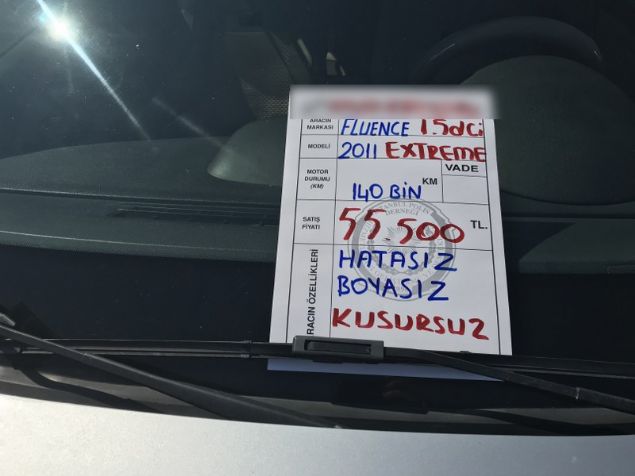 ARACIN MARKASI FLUENCE 1.5dci
MODELİ 2011 EXTREME
VADE
MOTOR DURUMU (KM) 140 BİN KM
SATIŞ FİYATI 55.500 TL.
ARACIN ÖZELLİKLERİ
HATASIZ
BOYASIZ
KUSURSUZ